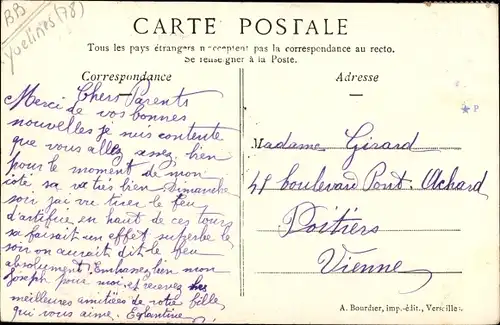 BB
Yvelines (78)
CARTE POSTALE
Tous les pays étrangers n'acceptent pas la correspondance au recto.
Se renseigner à la Poste.
Correspondance
Adresse
P
Chers Parents
Merci de vos bonnes
nouvelles je suis contente
que vous allez assez bien
pour le moment de mon
côté sa va très bien Dimanche
soir j'ai vu tirer le feu
d'artifice en haut de ces tours
sa faisait un effet superbe le
soir on aurait dit le feu
absolument. Embrassez bien mon
Joseph pour moi, et recevez les
meilleures amitiées de votre fille
qui vous aime. Eglantine
Madame Girard
48 boulevard Pont-Achard
Poitiers
Vienne
A. Bourdier, imp.-édit., Versailles